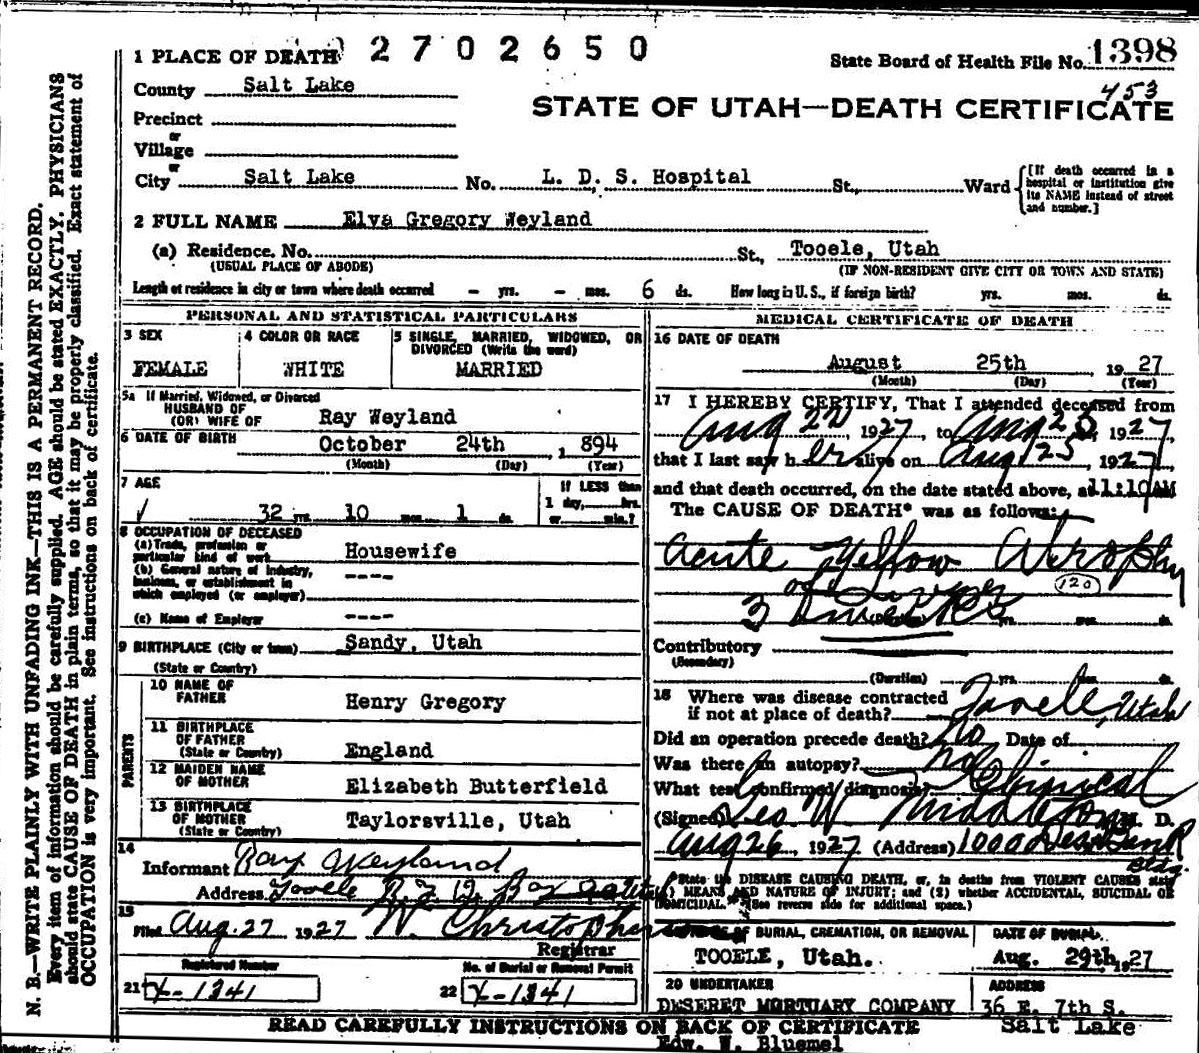 2702650
1 PLACE OF DEATH
State Board of Health File No. 1398
453
County Salt Lake
STATE OF UTAH—DEATH CERTIFICATE
Precinct
or
Village
or
City Salt Lake No. L. D. S. Hospital St., Ward
[If death occurred in a hospital or institution give its NAME instead of street and number.]
2 FULL NAME Elva Gregory Weyland
(a) Residence. No. St., Tooele, Utah
(USUAL PLACE OF ABODE) (IF NON-RESIDENT GIVE CITY OR TOWN AND STATE)
Length of residence in city or town where death occurred - yrs. - mos. 6 ds. How long in U. S., if foreign birth? yrs. mos. ds.
PERSONAL AND STATISTICAL PARTICULARS
3 SEX
FEMALE
4 COLOR OR RACE
WHITE
5 SINGLE, MARRIED, WIDOWED, OR DIVORCED (Write the word)
MARRIED
5a If Married, Widowed, or Divorced
HUSBAND OF
(OR) WIFE OF Ray Weyland
6 DATE OF BIRTH October 24th, 1894
(Month) (Day) (Year)
7 AGE
32 yrs. 10 mos. 1 ds.
If LESS than
1 day, hrs.
or min.?
8 OCCUPATION OF DECEASED
(a) Trade, profession or
particular kind of work Housewife
(b) General nature of industry,
business, or establishment in
which employed (or employer) ----
(c) Name of Employer ----
9 BIRTHPLACE (City or town) Sandy, Utah
(State or Country)
PARENTS
10 NAME OF
FATHER Henry Gregory
11 BIRTHPLACE
OF FATHER
(State or Country) England
12 MAIDEN NAME
OF MOTHER Elizabeth Butterfield
13 BIRTHPLACE
OF MOTHER
(State or Country) Taylorsville, Utah
14
Informant Ray Weyland
Address Tooele
15
Filed Aug. 27 1927 W. Christopherson
Registrar
Registered Number
21 X-1341
No. of Burial or Removal Permit
22 X-1341
MEDICAL CERTIFICATE OF DEATH
16 DATE OF DEATH
August 25th 1927
(Month) (Day) (Year)
17 I HEREBY CERTIFY, That I attended deceased from
Aug 22, 1927, to Aug 25, 1927,
that I last saw her alive on Aug 25, 1927,
and that death occurred, on the date stated above, at 11:10 AM
The CAUSE OF DEATH* was as follows:
Acute Yellow Atrophy
of Liver
120
3 weeks
Contributory
(Secondary)
(Duration) yrs. mos. ds.
18 Where was disease contracted
if not at place of death? Tooele, Utah
Did an operation precede death? No Date of
Was there an autopsy? No
What test confirmed diagnosis? Clinical
(Signed) Geo W. Middleton M. D.
Aug 26, 1927 (Address) 1000 Deseret Bank
Bldg.
*State the DISEASE CAUSING DEATH, or, in deaths from VIOLENT CAUSES state
(1) MEANS AND NATURE OF INJURY; and (2) whether ACCIDENTAL, SUICIDAL OR
HOMICIDAL. (See reverse side for additional space.)
OF BURIAL, CREMATION, OR REMOVAL
TOOELE, Utah.
DATE OF BURIAL
Aug. 29th, 1927
20 UNDERTAKER
DESERET MORTUARY COMPANY
Edw. W. Bluemel
ADDRESS
36 E. 7th S.
Salt Lake
READ CAREFULLY INSTRUCTIONS ON BACK OF CERTIFICATE
N. B.—WRITE PLAINLY WITH UNFADING INK—THIS IS A PERMANENT RECORD.
Every item of information should be carefully supplied. AGE should be stated EXACTLY. PHYSICIANS
should state CAUSE OF DEATH in plain terms, so that it may be properly classified. Exact statement of
OCCUPATION is very important. See instructions on back of certificate.